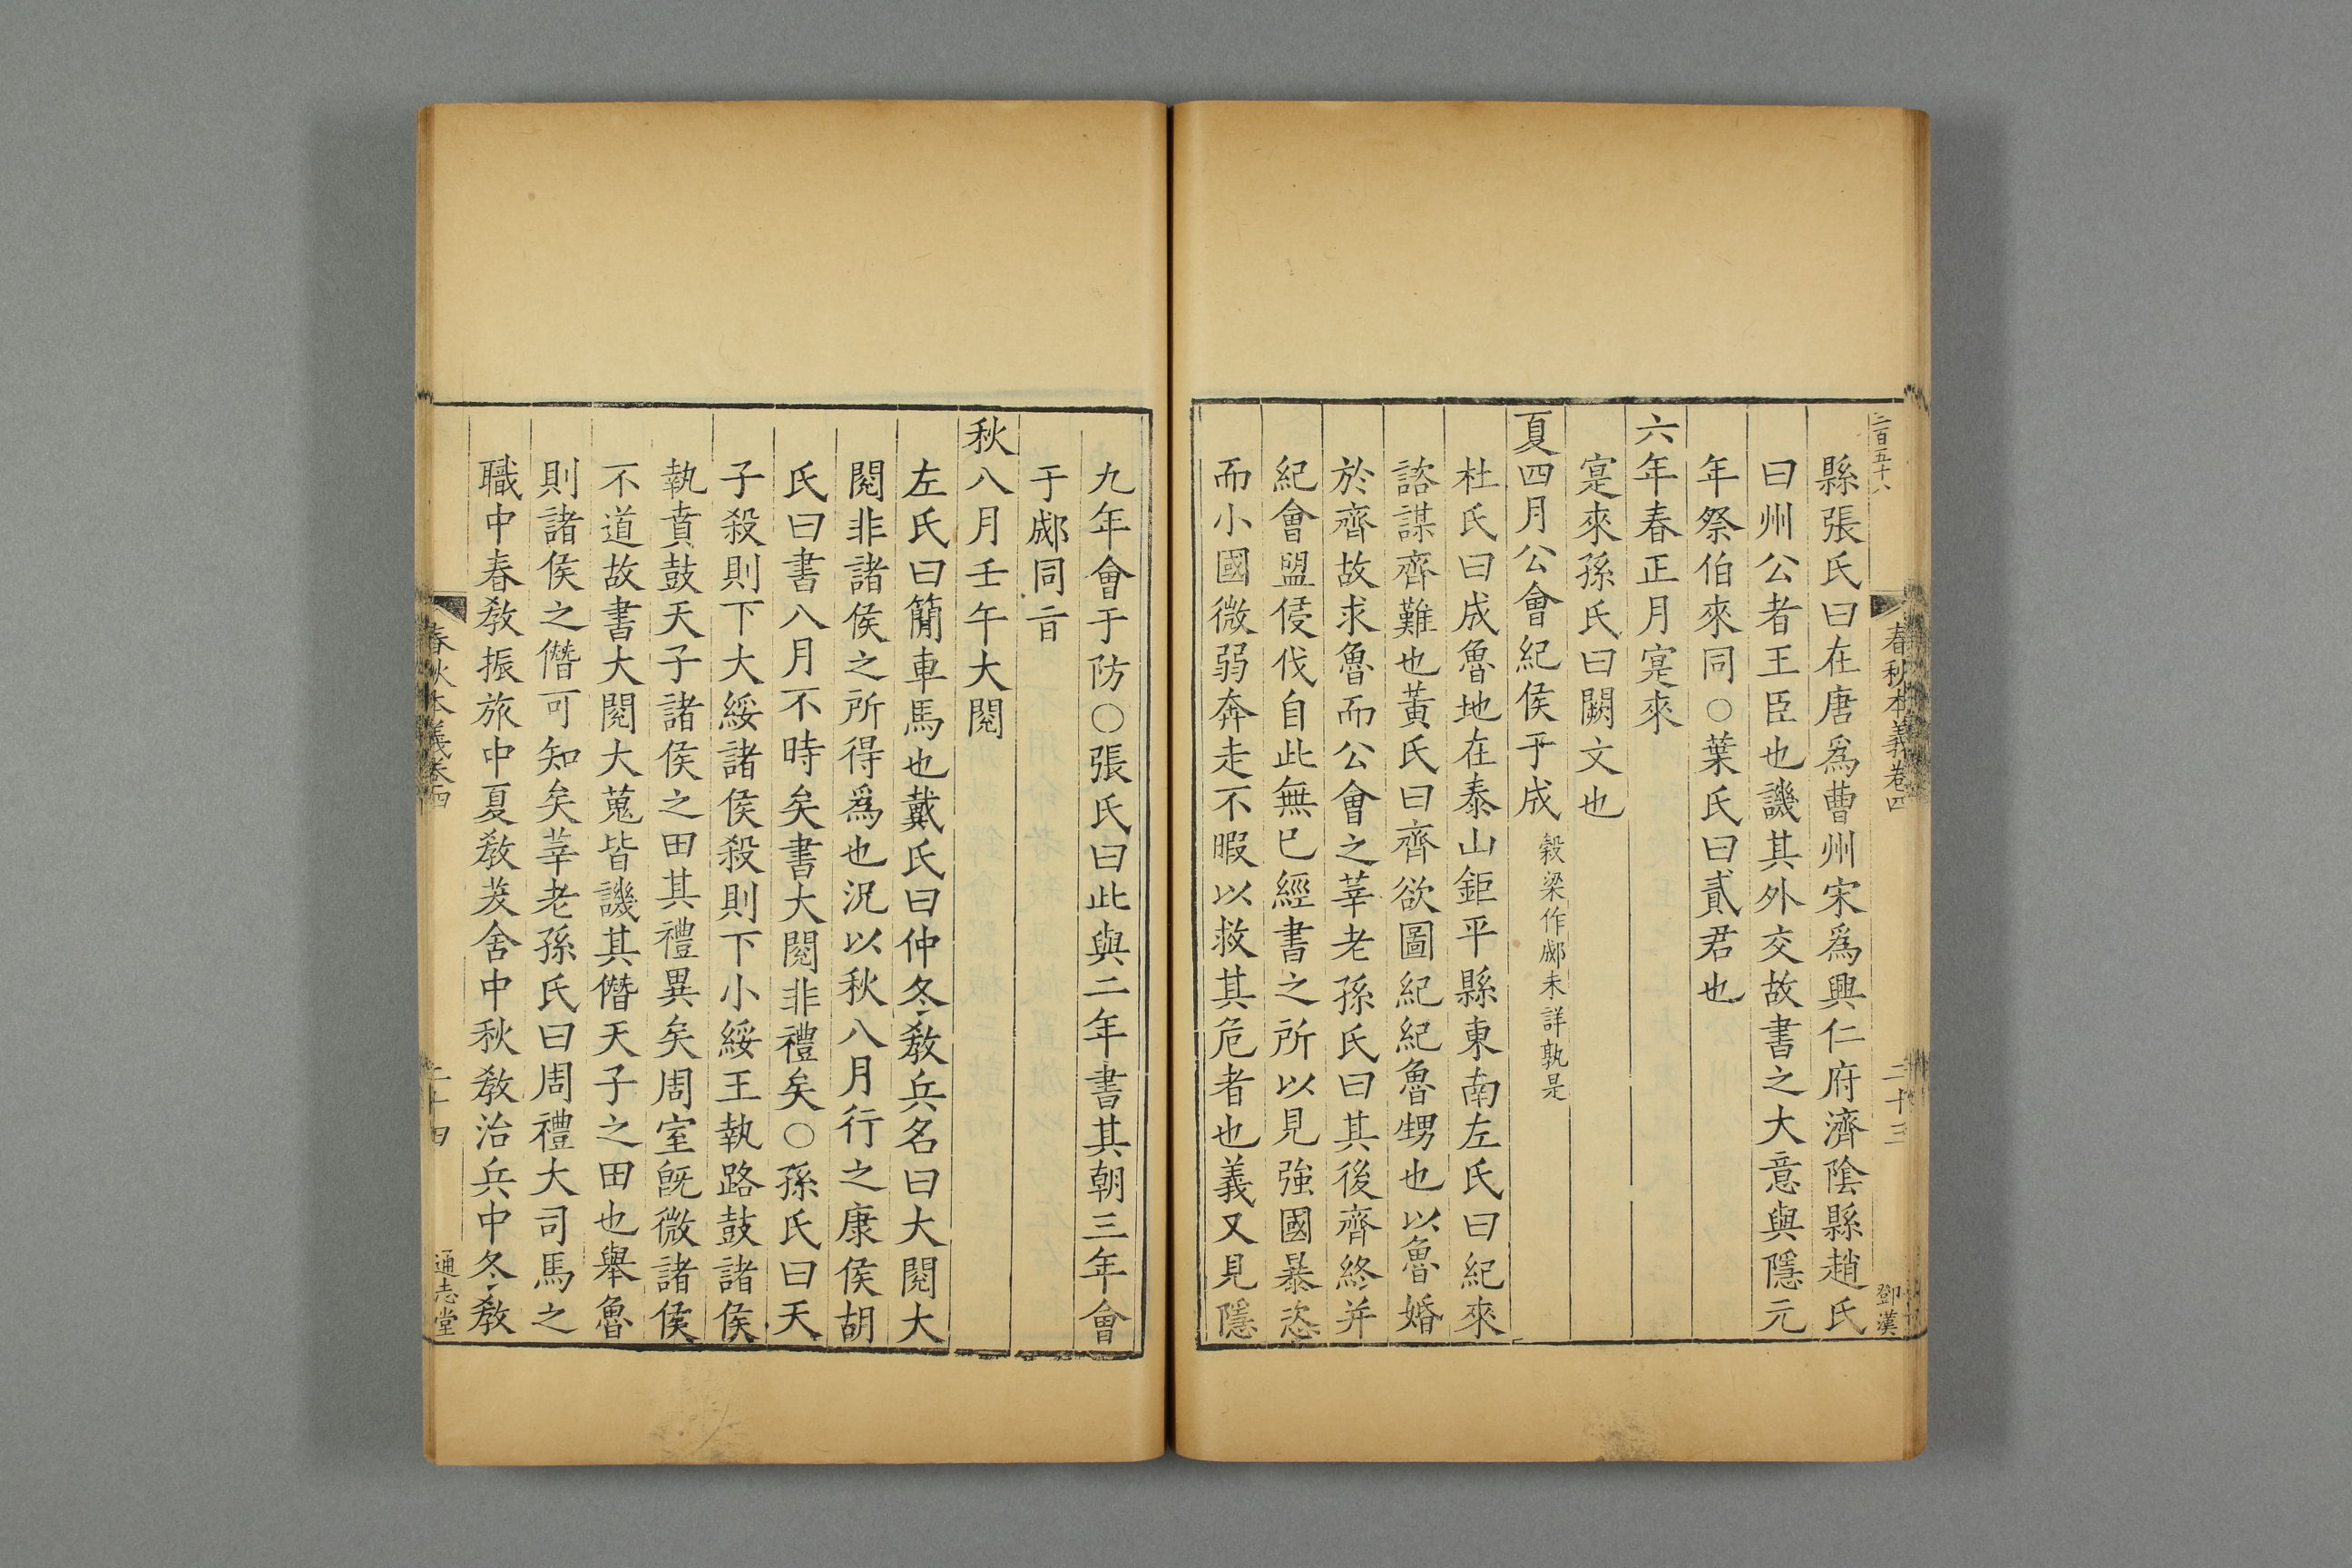 二百五十八
春秋本義卷四
二十三
鄧漢
縣張氏曰在唐爲曹州宋爲興仁府濟陰縣趙氏
曰州公者王臣也譏其外交故書之大意與隱元
年祭伯來同○葉氏曰貳君也
六年春正月寔來
寔來孫氏曰闕文也
夏四月公會紀侯于成 穀梁作郕未詳孰是
杜氏曰成魯地在泰山鉅平縣東南左氏曰紀來
諮謀齊難也黃氏曰齊欲圖紀紀魯甥也以魯婚
於齊故求魯而公會之莘老孫氏曰其後齊終并
紀會盟侵伐自此無已經書之所以見強國暴恣
而小國微弱奔走不暇以救其危者也義又見隱
九年會于防○張氏曰此與二年書其朝三年會
于郕同㫖
秋八月壬午大閱
左氏曰簡車馬也戴氏曰仲冬教兵名曰大閱大
閱非諸侯之所得爲也況以秋八月行之康侯胡
氏曰書八月不時矣書大閱非禮矣○孫氏曰天
子殺則下大綏諸侯殺則下小綏王執路鼓諸侯
執賁鼓天子諸侯之田其禮異矣周室旣微諸侯
不道故書大閱大蒐皆譏其僭天子之田也舉魯
則諸侯之僭可知矣莘老孫氏曰周禮大司馬之
職中春教振旅中夏教茇舍中秋教治兵中冬教
春秋本義卷四
二十四
通志堂